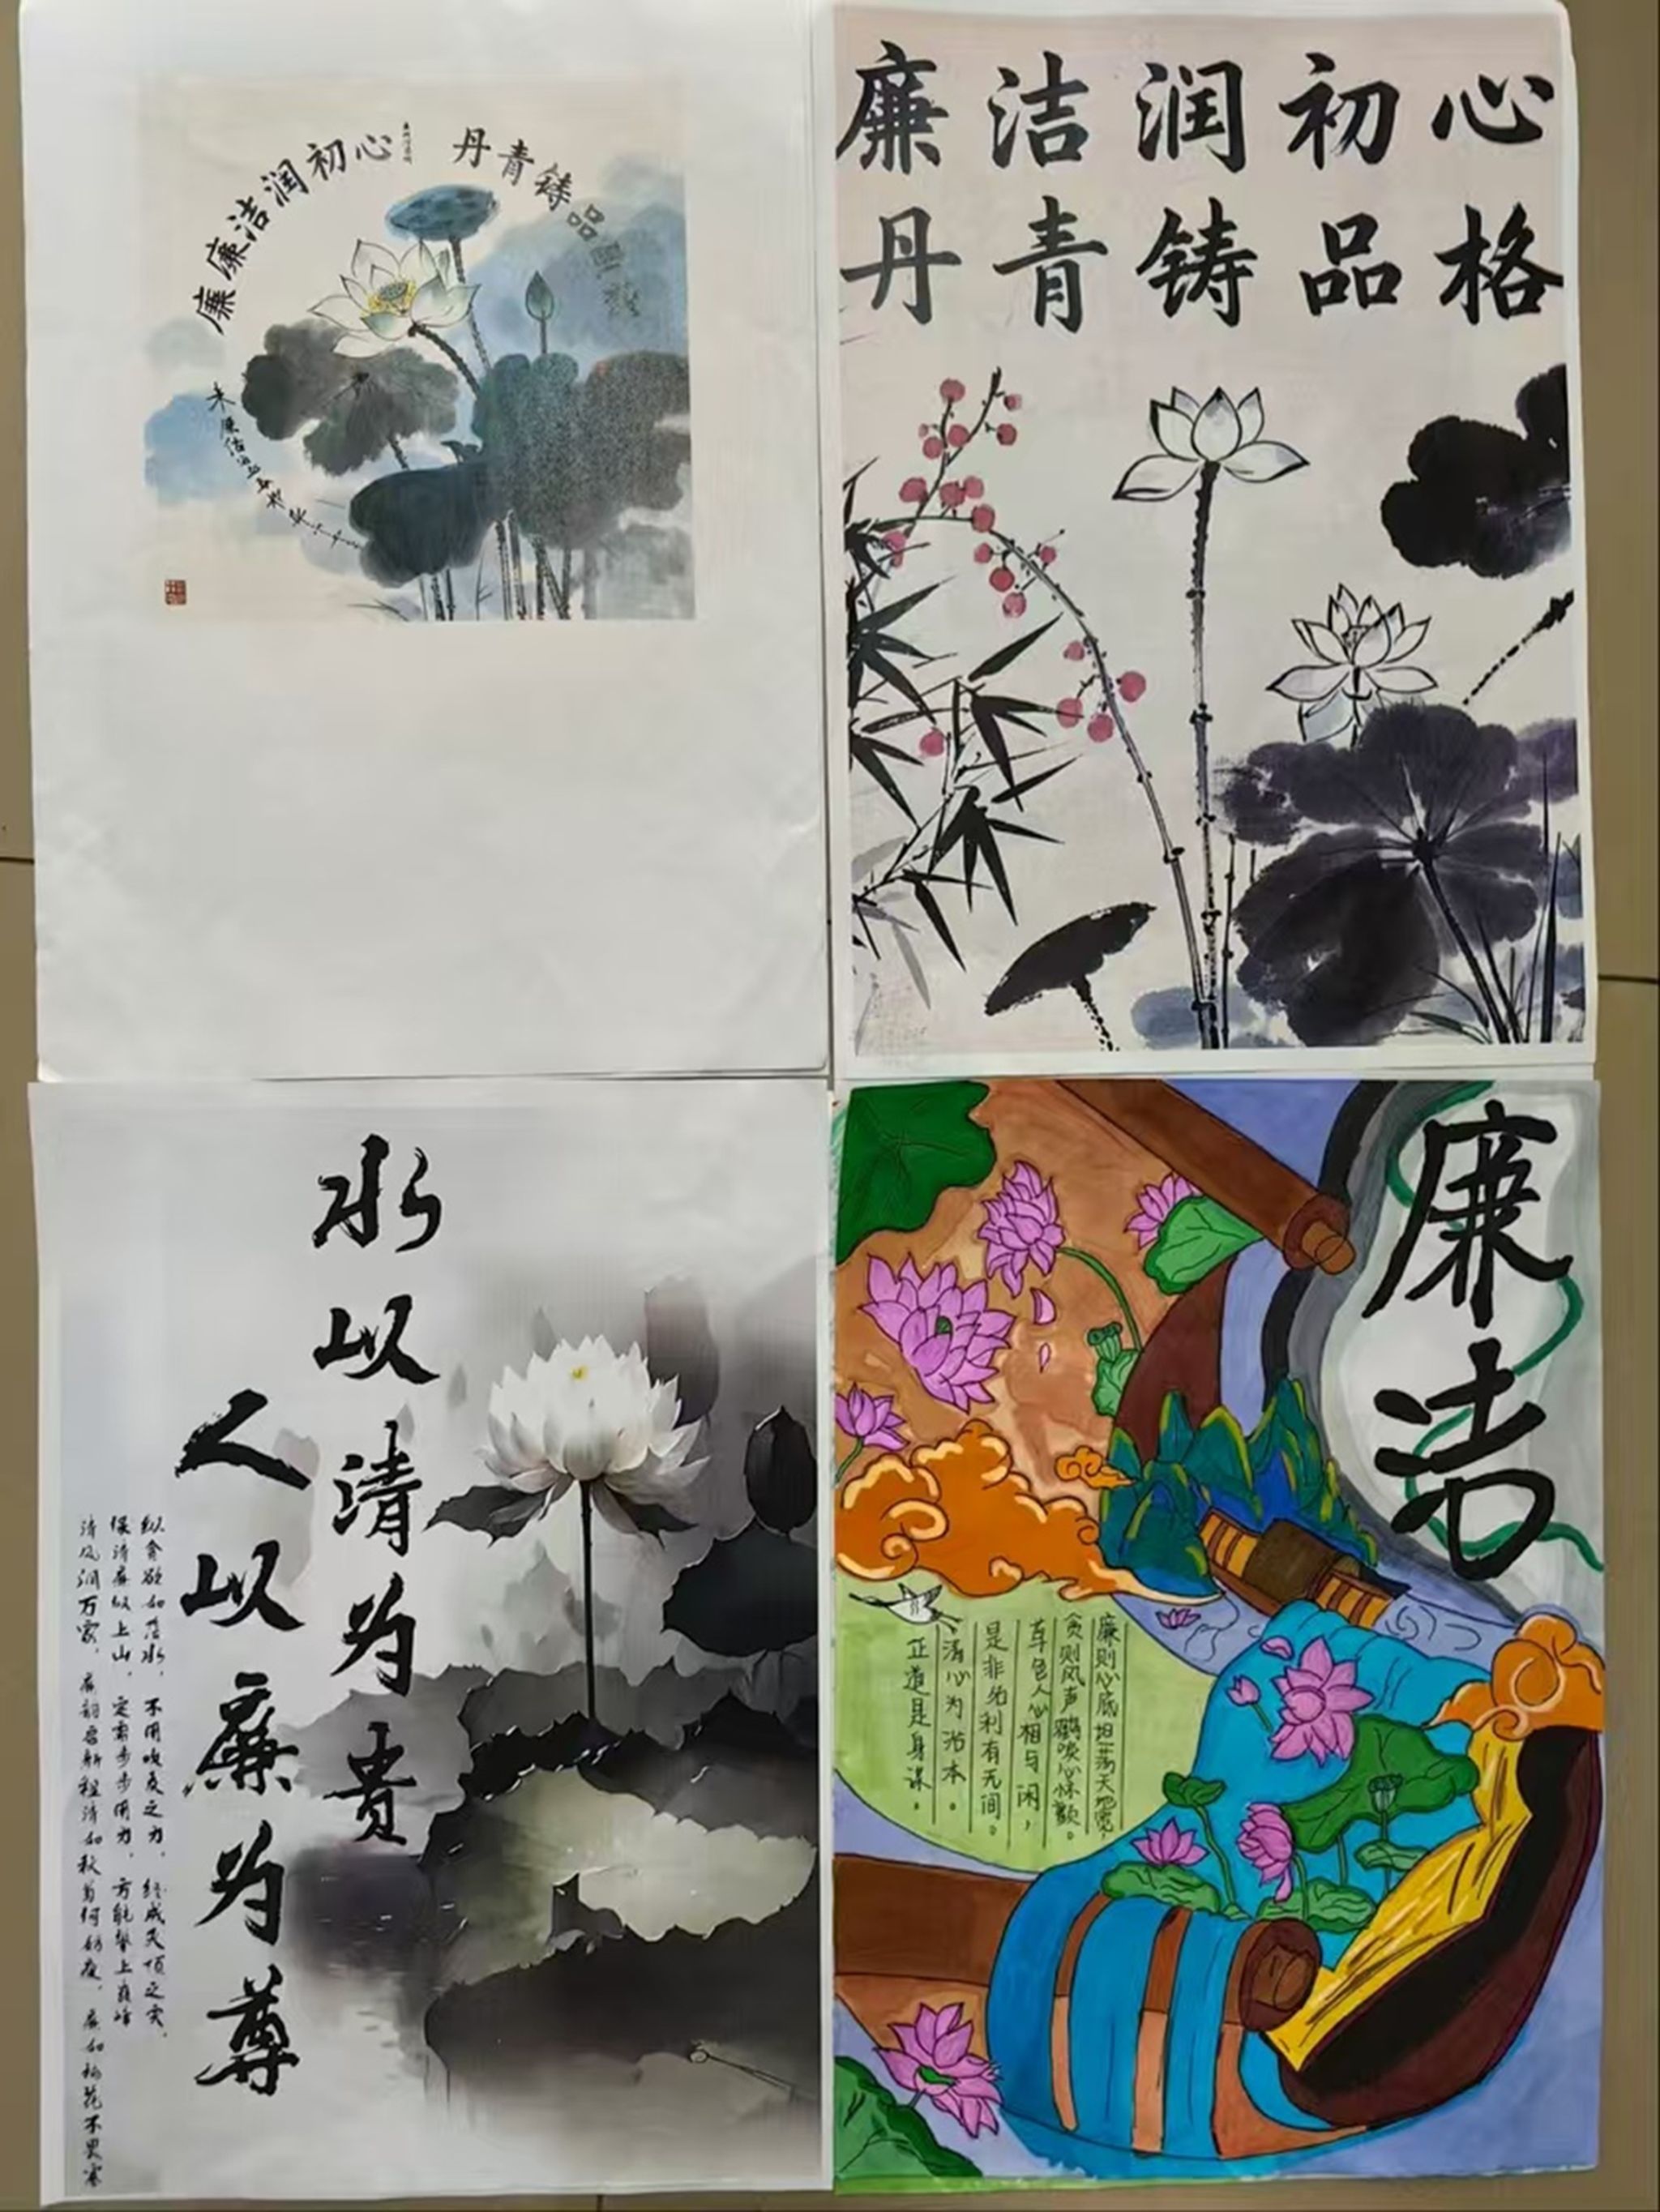 廉廉洁润初心
丹青铸品
廉洁润初心
丹青铸品格
水以清为贵
人以廉为尊
纵贪欲如落水，不用吹灰之力，经成灭顶之灾，
保清廉似上山，定需步步用力，方能攀上巅峰
清风润万家，廉韵启新程清如秋菊何妨瘦，廉如梅花不畏寒
廉洁
廉则心底坦荡天地宽，
贪则风声鹤唳心惊颤。
草色人心相与闲，
是非名利有无间。
清心为治本。
正道是身谋。